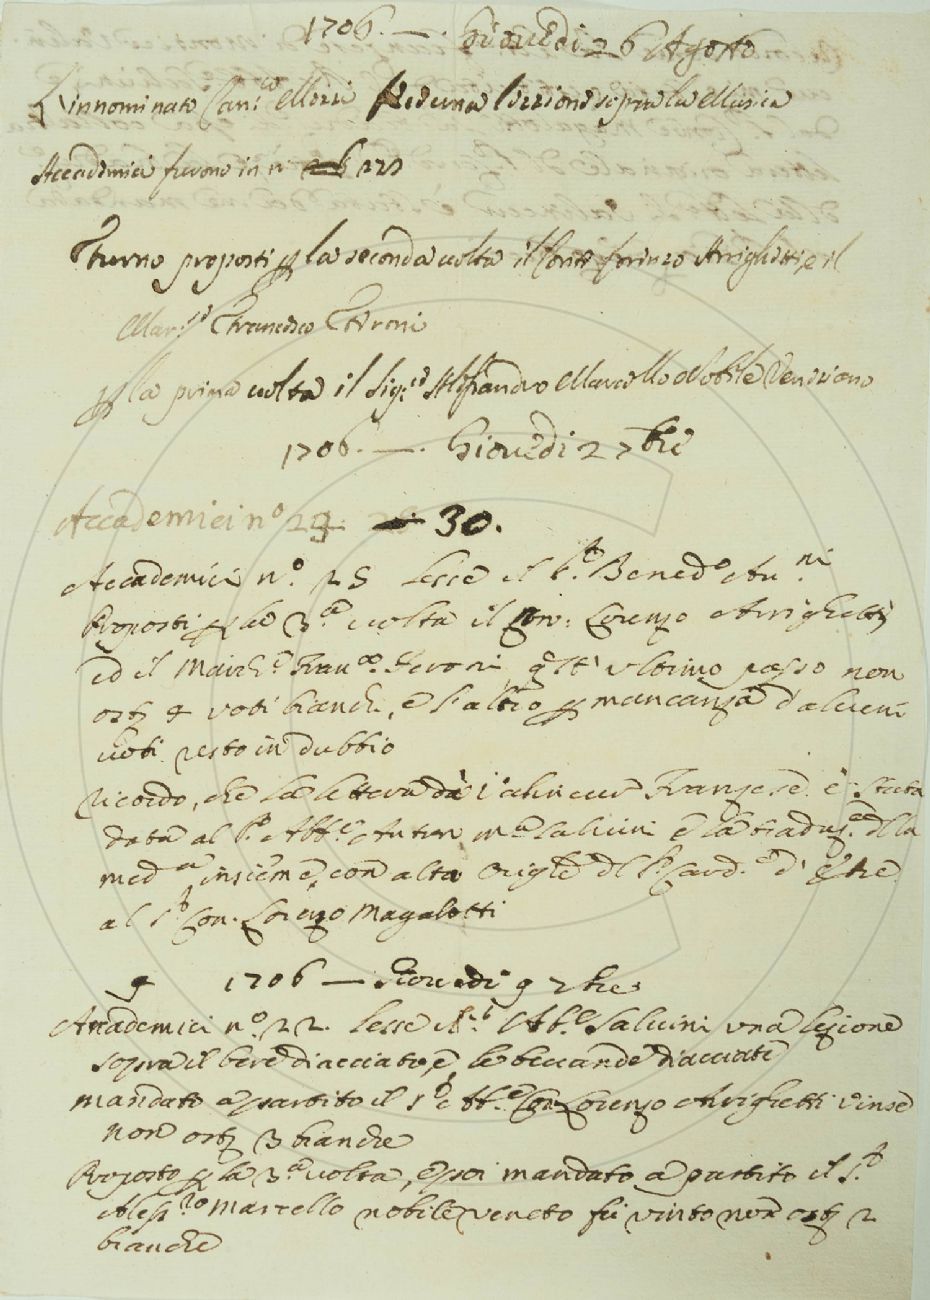 1706. —. Giovedi 26 Agosto
L'innominato Can.co Mozzi fece una lezzione sopra la Musica
Accademici furono in n.
Furno proposti p la seconda volta il Lorenzo Arrighetti, e il
Mar. Francesco Feroni
p la prima volta il Sig.re Alessandro Marcello Nobile Veneziano
1706. —. Giovedi 2 7bre
Accademici n.o 30.
Accademici n.o 25 Lesse il S.r Bened.o Av.ni
Proposti p la 3.a volta il Lorenzo Arrighetti
ed il March.e Fran.co Feroni q.st' ultimo passo non
ost. 4 voti bianchi, e l'altro p mancanza d'alcuni
voti resto in dubbio
ricordo, che la lettera Franzese è stata
data al S.r Abb.e Anton M.a Salvini e la traduz. della
med.a insieme con al S.r Card. d'
al S.r Con. Lorenzo Magalotti
1706 — Giovedi 9 7bre
Accademici n.o 22. Lesse il S.r Ab.e Salvini una lezione
sopra il bere diacciato, e le bevande diacciate
mandato a partito il S.r Lorenzo Arrighetti vinse
non ost. 3 bianche
Proposto p la 3.a volta, e poi mandato a partito il S.r
Aless.ro Marcello nobile veneto fu vinto non ost. 2
bianche